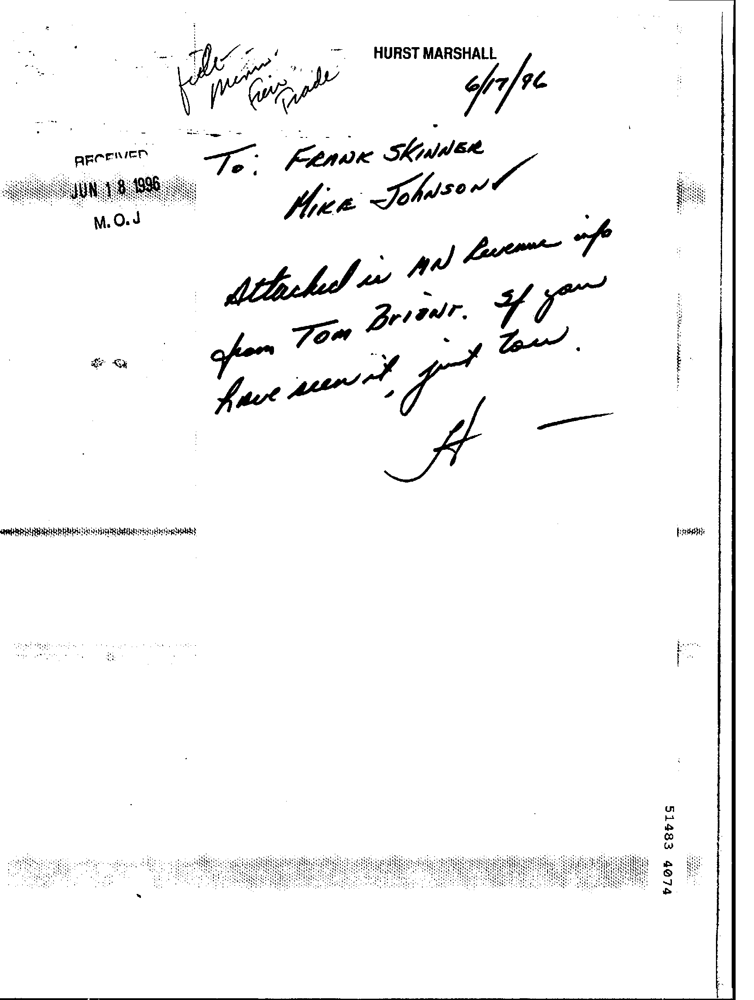 file -
Minn.
Fair
Trade
HURST MARSHALL
6/17/96
RECEIVED
JUN 18 1996
M.O.J
To: FRANK SKINNER
MIKE JOHNSON ✓
Attached is MN Revenue info
from TOM BRIANT. If you
have seen it, just toss.
H -
51483 4074